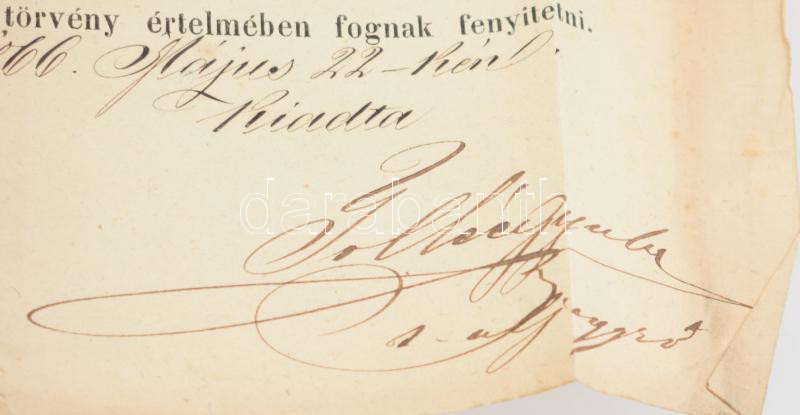 törvény értelmében fognak fenyítetni.
66. Május 22-kén
Kiadta
darabanth
jegyző